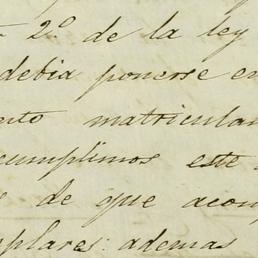 2º de la ley
debia ponerse en
nto matricular
cumplimos este
de que acom
mplares: ademas